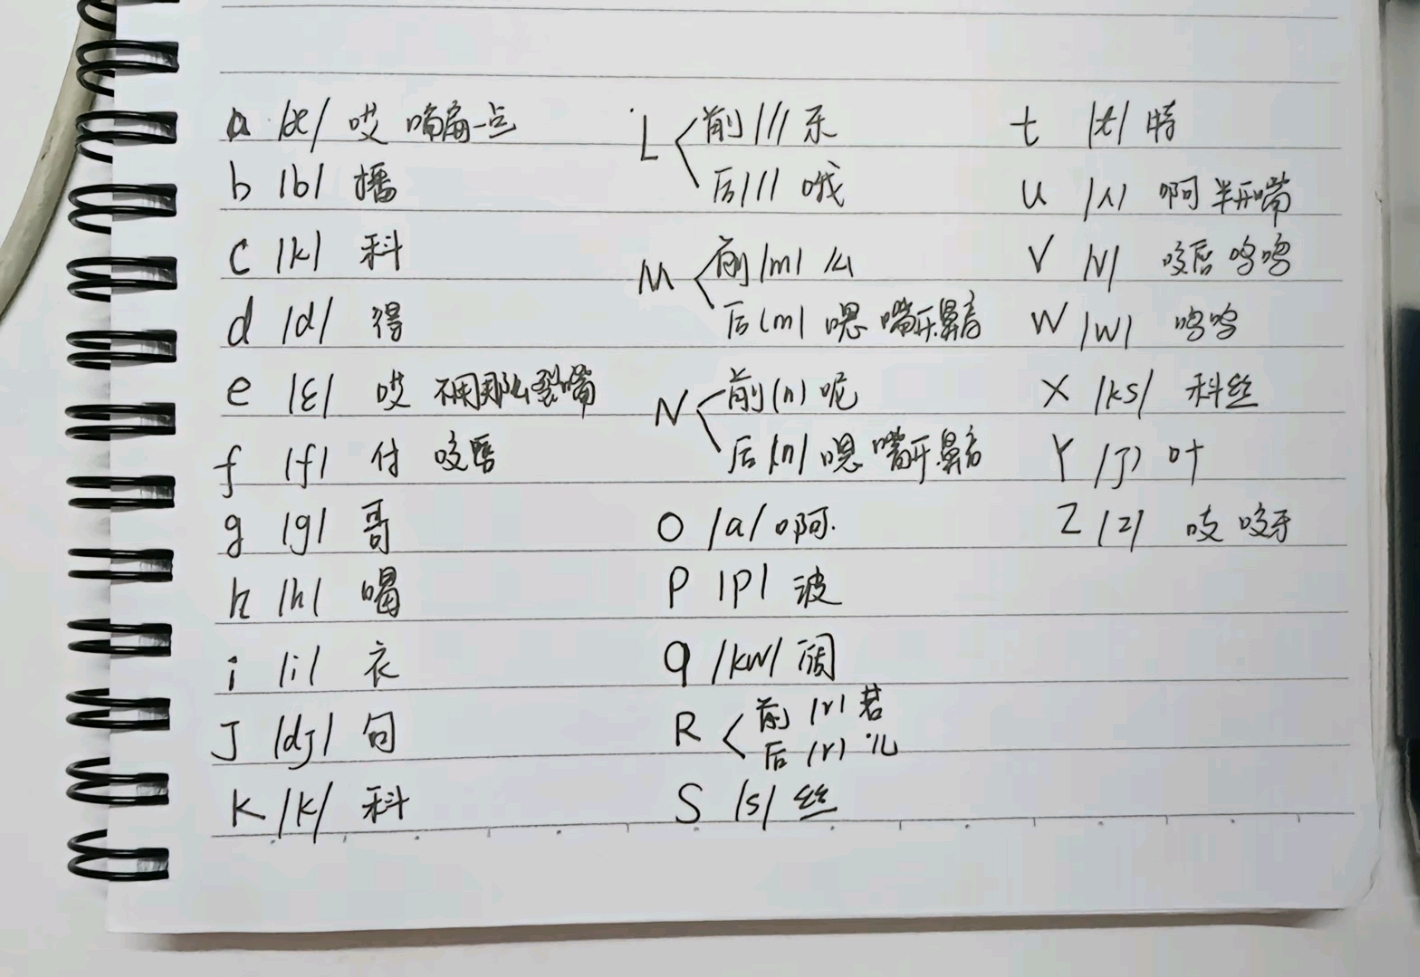 a /æ/ 哎 嘴扁一点
b /b/ 播
c /k/ 科
d /d/ 得
e /ɛ/ 哎 不用那么裂嘴
f /f/ 付 咬唇
g /g/ 哥
h /h/ 喝
i /i/ 衣
J /dJ/ 句
k /k/ 科
L 前 /l/ 乐
后 /l/ 哦
M 前 /m/ 么
后 /m/ 嗯 嘴开鼻音
N 前 /n/ 呢
后 /n/ 嗯 嘴开鼻音
O /a/ 啊
P /P/ 波
q /kw/
R 前 /r/ 若
后 /r/ 儿
S /s/ 丝
t /t/ 特
u /ʌ/ 啊 半开嘴
V /v/ 咬唇 呜呜
W /w/ 呜呜
X /ks/ 科丝
Y /J/ 叶
Z /z/ 吱 咬牙